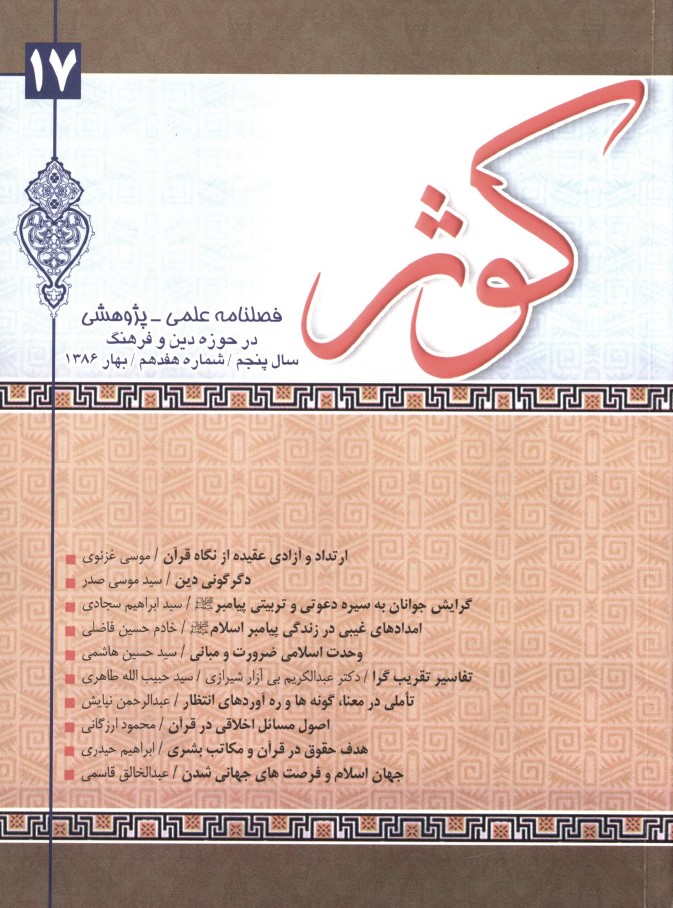 ۱۷
کوثر
فصلنامه علمی - پژوهشی
در حوزه دین و فرهنگ
سال پنجم / شماره هفدهم / بهار ۱۳۸۶
ارتداد و آزادی عقیده از نگاه قرآن / موسی غزنوی
دگرگونی دین / سید موسی صدر
گرایش جوانان به سیره دعوتی و تربیتی پیامبر ﷺ / سید ابراهیم سجادی
امدادهای غیبی در زندگی پیامبر اسلام ﷺ / خادم حسین فاضلی
وحدت اسلامی ضرورت و مبانی / سید حسین هاشمی
تفاسیر تقریب گرا / دکتر عبدالکریم بی آزار شیرازی / سید حبیب الله طاهری
تأملی در معنا، گونه ها و ره آوردهای انتظار / عبدالرحمن نیایش
اصول مسائل اخلاقی در قرآن / محمود ارزگانی
هدف حقوق در قرآن و مکاتب بشری / ابراهیم حیدری
جهان اسلام و فرصت های جهانی شدن / عبدالخالق قاسمی